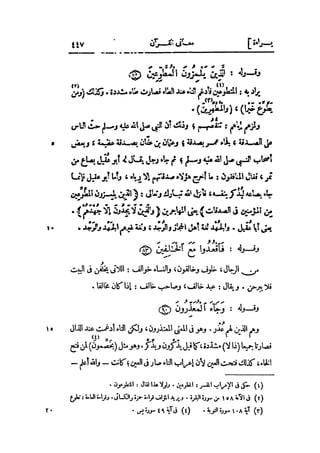 براءة ]
معانى القرآن
٤٤٧
وقوله : الَّذِينَ يَلْمِزُونَ الْمُطَّوِّعِينَ (٧٩)
يراد به : المتطوعين فأدغم التاء عند الطاء فصارت طاء مشددة . وكذلك (ومن
يطّوّع خيرا) ، (والمطّهرين) .
ولمزهم إياهم : تنقّصهم ؛ وذلك أن النبي صلى الله عليه وسلم حث الناس
على الصدقة ، فجاء عمر بصدقة ؛ وعثمان بن عفّان بصدقة عظيمة ، وبعض
٥
أصحاب النبي صلى الله عليه وسلم ، ثم جاء رجل يقال له أبو عقيل بصاع من
تمر ، فقال المنافقون : ما أخرج هؤلاء صدقاتهم إلا رياء ، وأما أبو عقيل فإنما
جاء بصاعه ليُذكر بنفسه ، فأنزل الله تبارك وتعالى : (الذين يلمزون المطّوّعين
من المؤمنين فى الصدقات) يعنى المهاجرين (والذين لا يجدون إلا جهدهم) .
يعنى أبا عقيل . والجهد لغة أهل الحجاز والوجد ، ولغة غيرهم الجهد والوجد .
١٠
وقوله : فَاقْعُدُوا مَعَ الْخَالِفِينَ (٨٣)
من الرجال ، خلوف وخالفون ، والنساء خوالف : اللاتى يخلفن فى البيت
فلا يبرحن . ويقال : عبد خالف ، وصاحب خالف : إذا كان مخالفا .
وقوله : وَجَاءَ الْمُعَذِّرُونَ (٩٠)
وهم الذين لهم عذر . وهو فى المعنى المعتذرون ، ولكن التاء أدغمت عند الذال
١٥
فصارتا جميعا (ذالا) مشددة ، كما قيل يذّكرون ويذّكر . وهو مثل (يخصّمون) لمن فتح
الخاء ، كذلك فتحت العين لأن إعراب التاء صار فى العين ؛ كانت — والله أعلم —
(١) حكى فى الإعراب المفسر : المطوعين ، ولولا هذا لقال : المطوعون .
(٢) فى الآية ١٥٨ من سورة البقرة . ويريد المؤلف قراءة حمزة والكسائى . وقراءة العامة : تطوع
(٣) آية ١٠٨ سورة التوبة . (٤) فى آية ٤٩ سورة يس .
٢٠